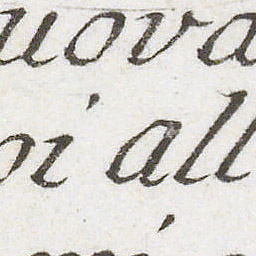 uova
oi all